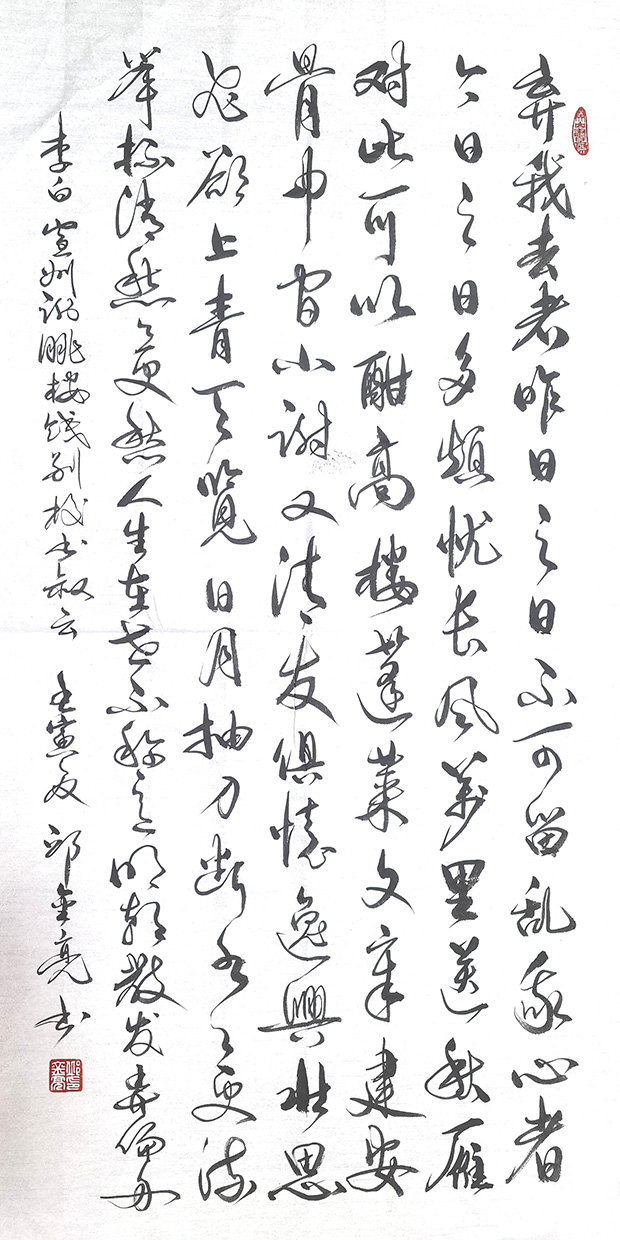 弃我去者昨日之日不可留乱我心者
今日之日多烦忧长风萬里送秋雁
对此可以酣高楼蓬莱文章建安
骨中间小谢又清发俱怀逸興壮思
飞欲上青天览日月抽刀断水水更流
举杯消愁愁更愁人生在世不称意明朝散发弄扁舟
李白宣州谢朓楼饯别校书叔云 壬寅夏 邱金亮书